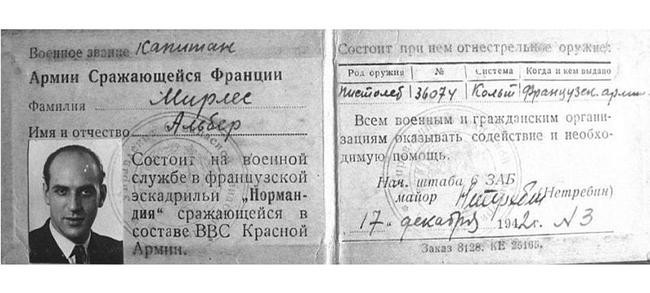 Военное звание капитан
Армии Сражающейся Франции
Фамилия Мирлес
Имя и отчество Альбер
Состоит на военной
службе в французской
эскадрильи „Норман-
дия" сражающейся в
составе ВВС Красной
Армии.
Состоит при нем огнестрельное оружие:
Род оружия № Система Когда и кем выдано
пистолет 36074 Кольт французск. армии
Всем военным и гражданским органи-
зациям оказывать содействие и необхо-
димую помощь.
Нач. штаба 6 ЗАБ
майор (Нетребин)
17 декабря 1942 г. №3
Заказ 8128. КЕ 25165.